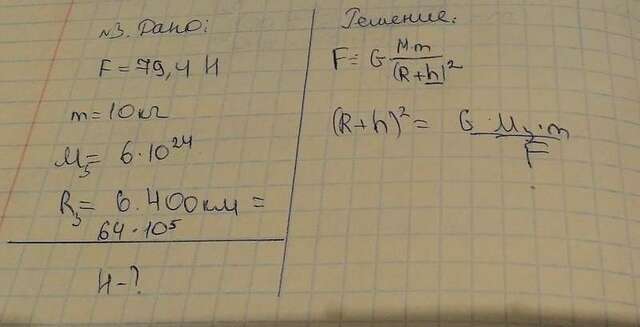 №3. Дано:
F = 79,4 Н
m = 10 кг
Mз = 6·10²⁴
Rз = 6.400 км =
64·10⁵
H - ?
Решение:
F = G M·m / (R+h)²
(R+h)² = G·Mз·m / F